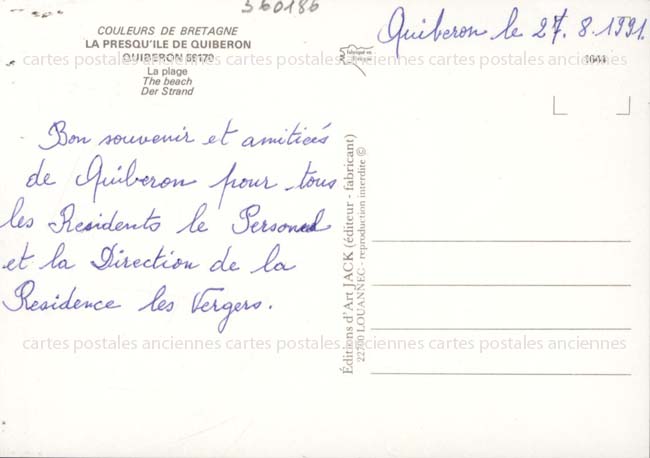 360186
COULEURS DE BRETAGNE
LA PRESQU'ILE DE QUIBERON
QUIBERON 56170
La plage
The beach
Der Strand
Quiberon le 27.8.1991.
fabriqué en
cartes postales anciennes cartes postales anciennes
Bon souvenir et amitiés
de Quiberon pour tous
les Residents le Personnel
et la Direction de la
Residence les Vergers.
Éditions d'Art JACK (éditeur - fabricant)
22700 LOUANNEC - reproduction interdite ©
cartes postales anciennes cartes postales anciennes